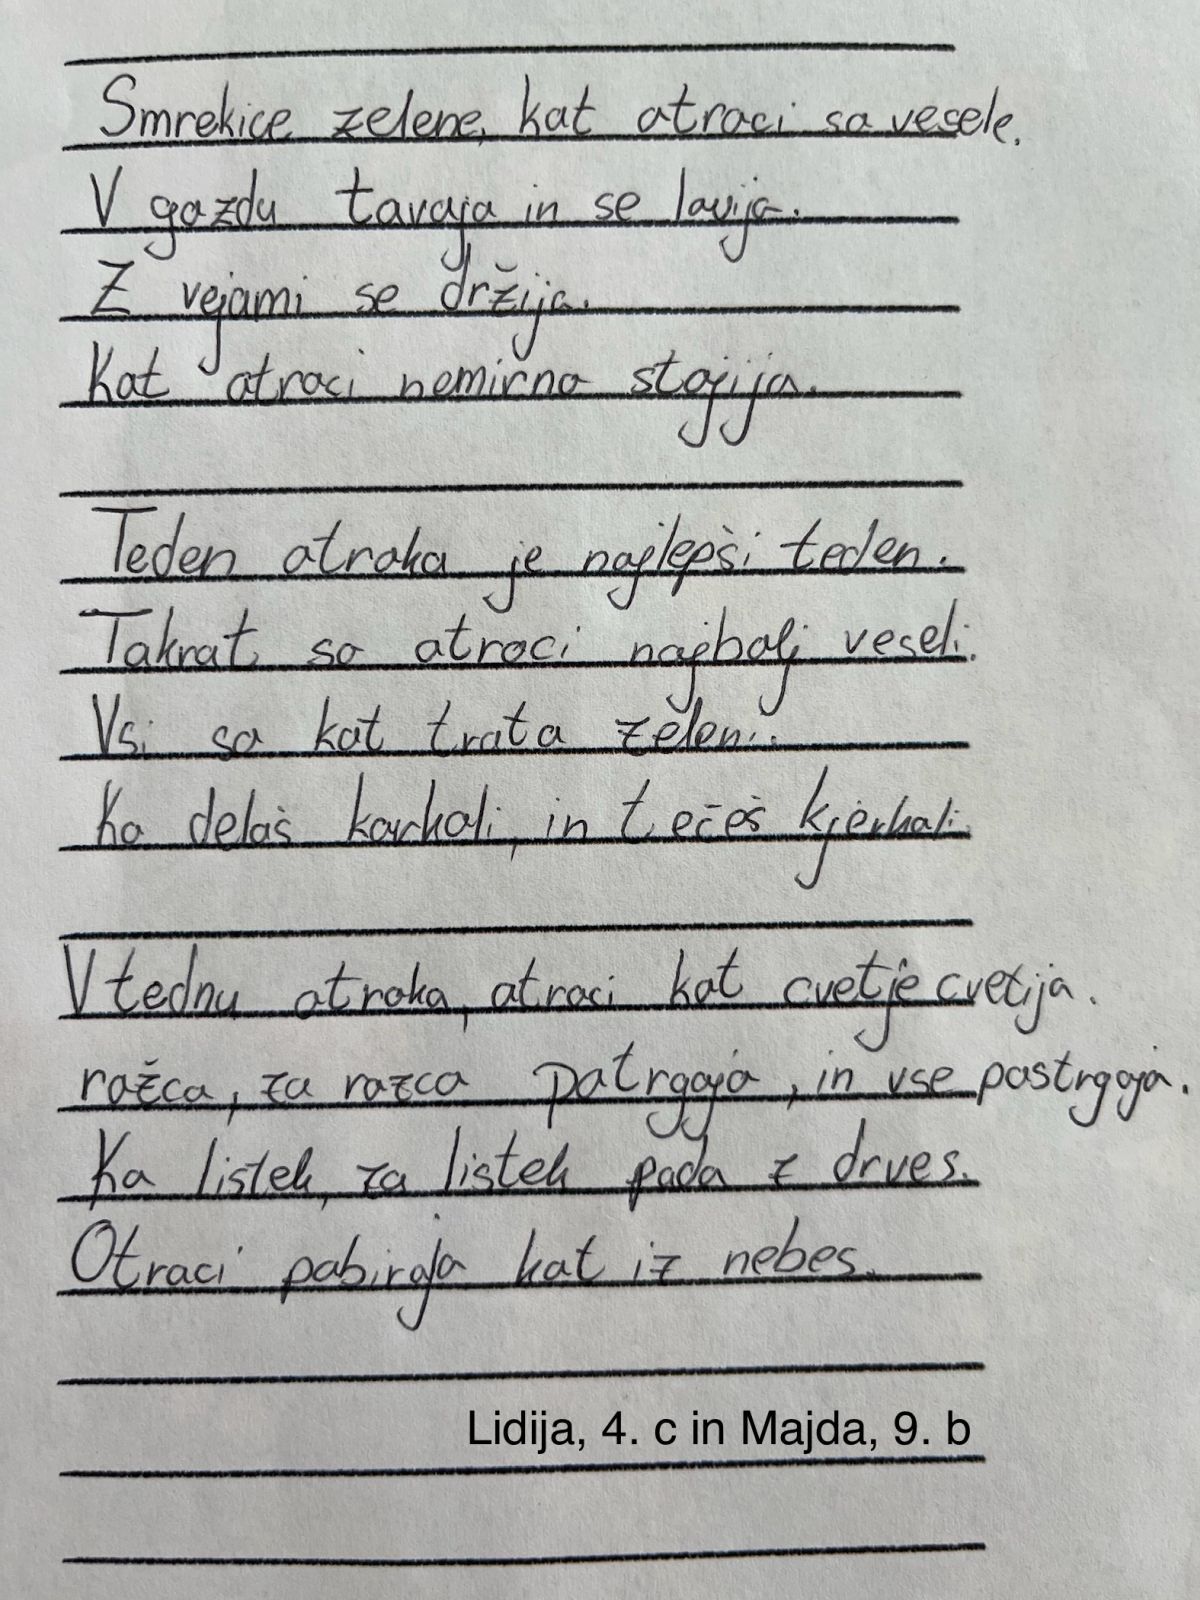 Smrekice zelene, kot otroci so vesele.
V gozdu tavajo in se lovijo.
Z vejami se držijo.
Kot otroci nemirno stojijo.
Teden otroka je najlepši teden.
Takrat so otroci najbolj veseli.
Vsi so kot trata zeleni.
Ko delaš karkoli, in tečeš kjerkoli.
V tednu otroka, otroci kot cvetje cvetijo.
rožco, za rozco potrgajo, in vse postrgajo.
Ko listek, za listek pada z drves.
Otroci pobirajo kot iz nebes.
Lidija, 4. c in Majda, 9. b